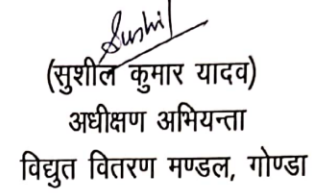 Sushil
(सुशील कुमार यादव)
अधीक्षण अभियन्ता
विद्युत वितरण मण्डल, गोण्डा